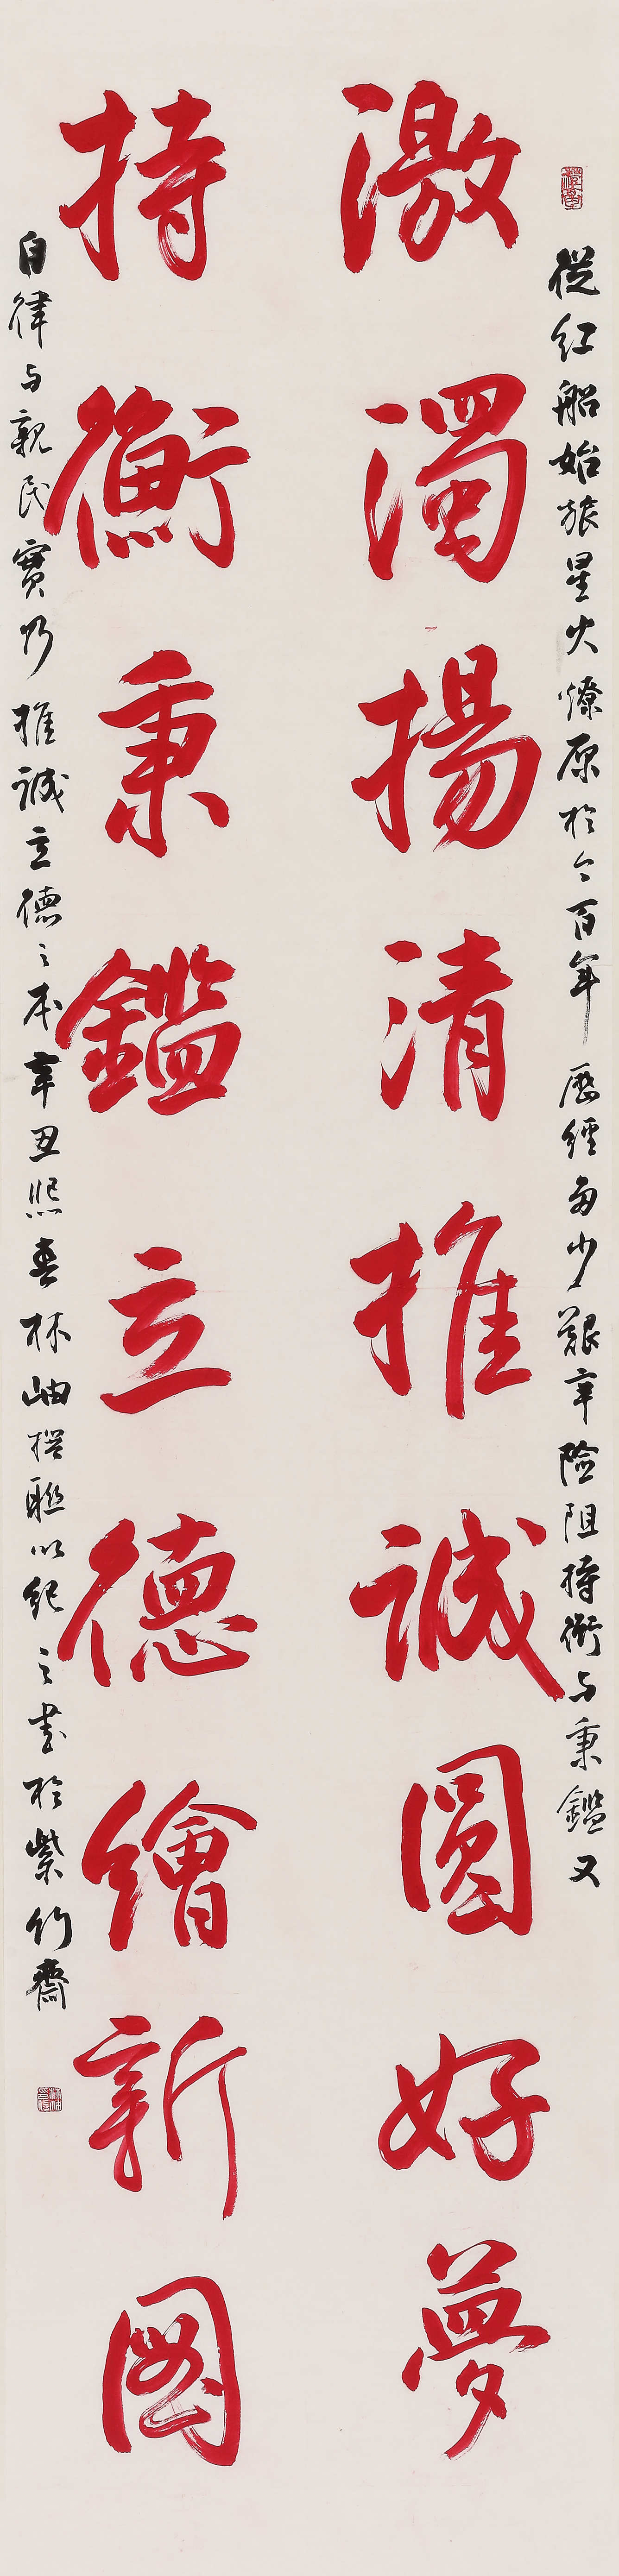 從红船始旅星火燎原於今百年歷經多少艱辛險阻持衡与秉鑑又
激濁揚清推誠圓好夢
持衡秉鑑立德繪新圖
自律与親民實乃推誠立德之本辛丑熙春林岫撰聯以紀之書於紫竹齋